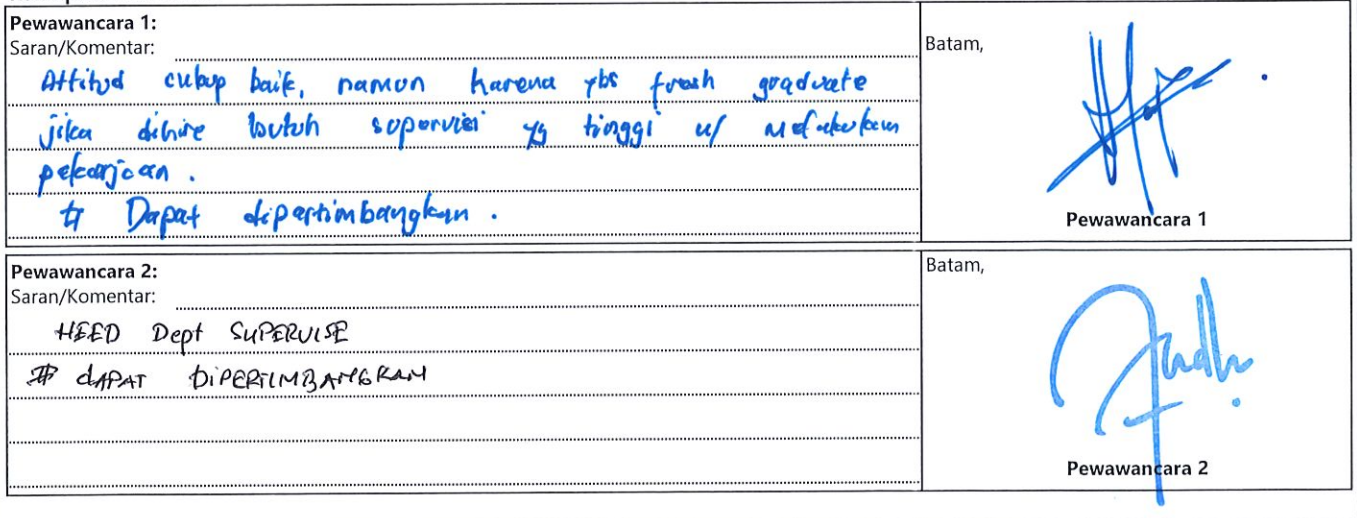 Pewawancara 1:
Saran/Komentar:
Attitud cukup baik, namun karena ybs fresh graduate
jika dihire butuh supervisi yg tinggi u/ melakukan
pekerjaan.
Dapat dipertimbangkan.
Batam,
Pewawancara 1
Pewawancara 2:
Saran/Komentar:
NEED Dept SUPERVISE
# dAPAT DiPERTIMBANGKAN
Batam,
Pewawancara 2